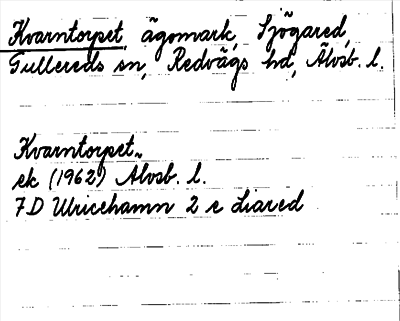 Kvarntorpet, ägomark, Sjögared,
Gullereds sn, Redvägs hd, Älvsb. l.
Kvarntorpet~
ek (1962) Älvsb. l.
7D Ulricehamn 2 e Liared